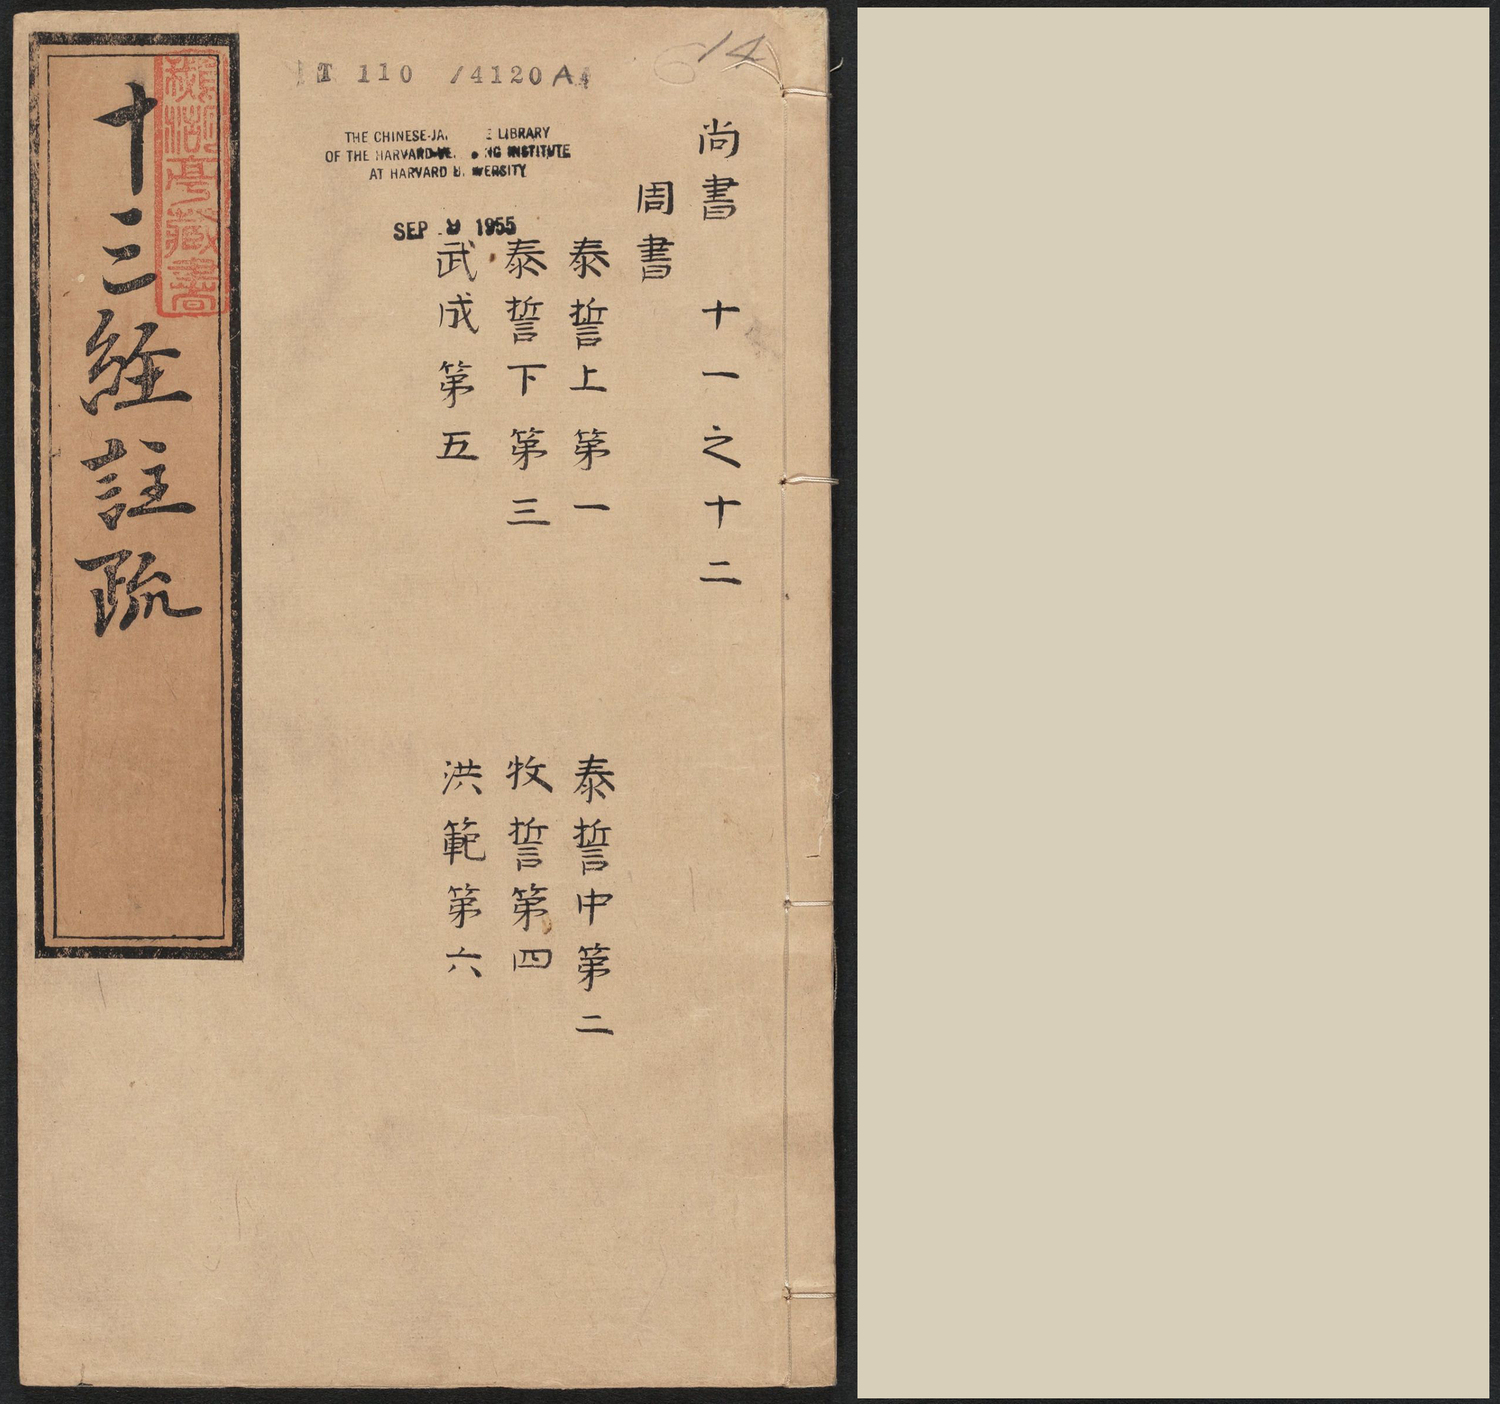 十三経註疏
T 110 /4120 A4
614
THE CHINESE-JA E LIBRARY
OF THE HARVARD-YE NG INSTITUTE
AT HARVARD U VERSITY
SEP 9 1955
尚書 十一之十二
周書
泰誓上第一 泰誓中第二
泰誓下第三 牧誓第四
武成第五 洪範第六
藏書